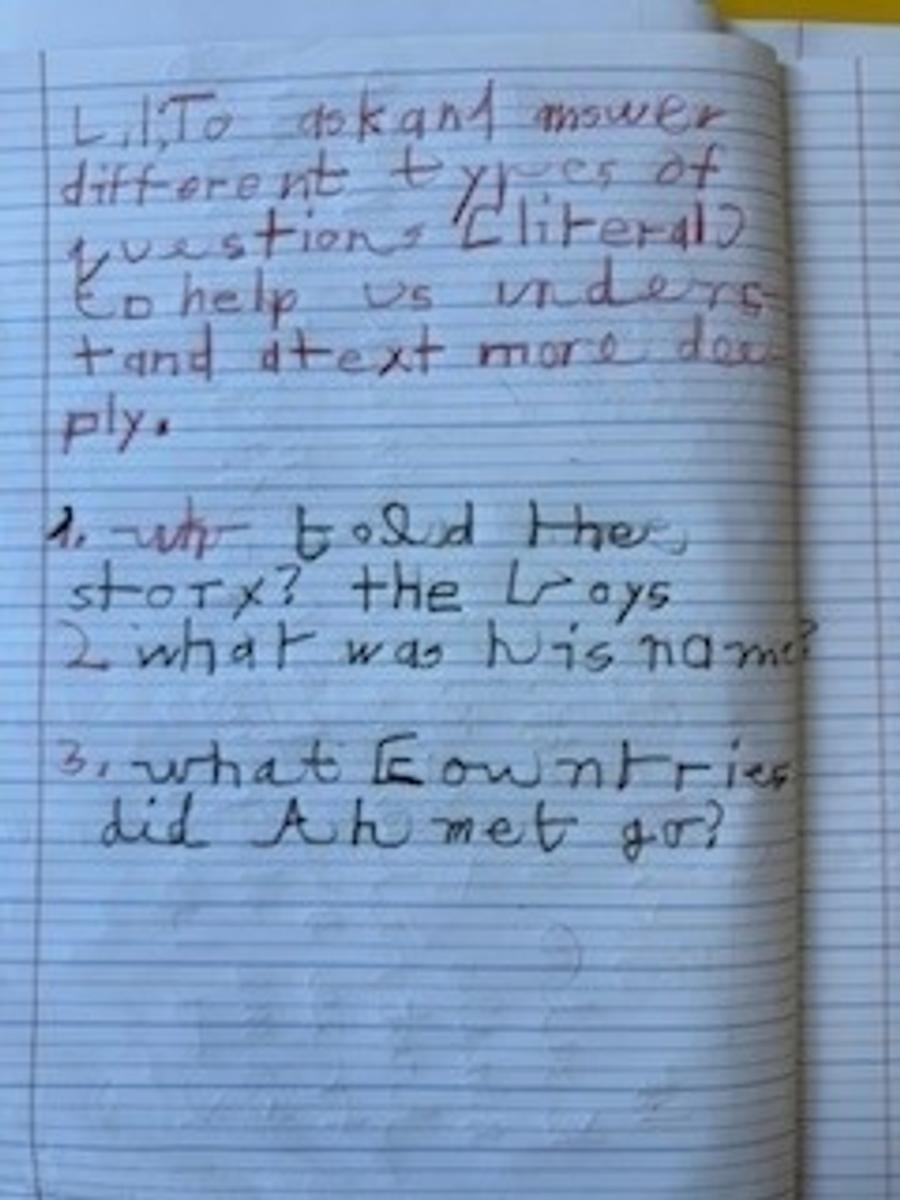 L.I.To ask and answer
different types of
questions (literal)
to help us unders-
tand a text more dee
ply.
1. who told the
story? the boys
2 what was his name?
3. what Countries
did Ahmet go?